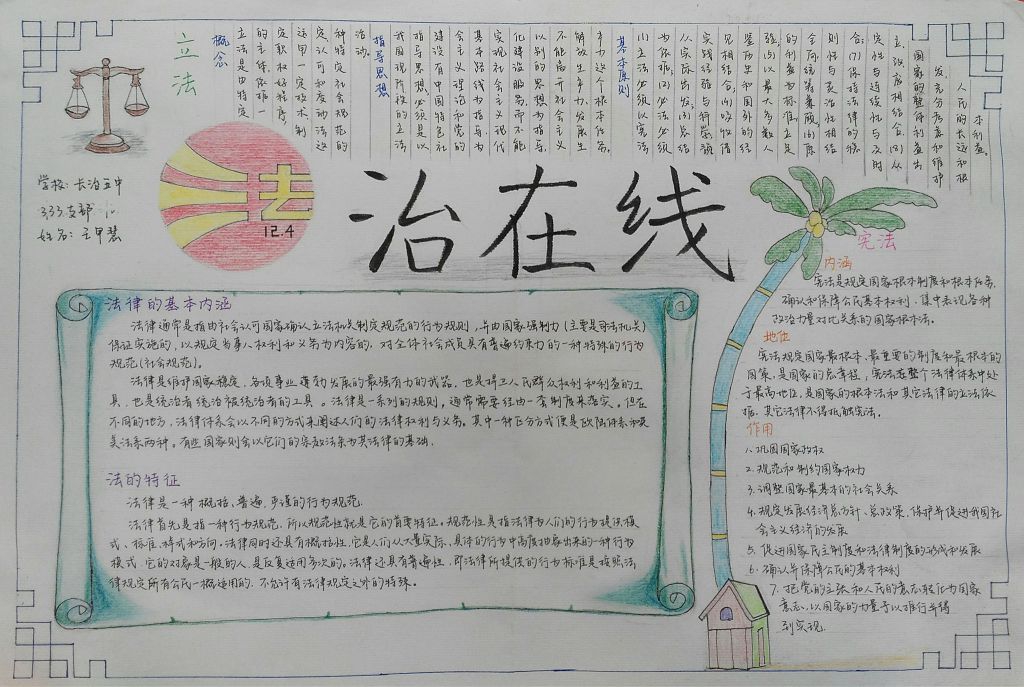 立法
概念
立法是由特定
的主体,依据一
定职权和程序,
运用一定技术,制
定认可和变动法这
种特定社会规范的
活动。
指导思想
我国现阶段的立法
指导思想,必须是以
建设有中国特色社
会主义理论和党的
基本路线为指导,为
实现社会主义现代
化建设服务,而不能
以别的思想为指导
不能离开社会主义
解放生产力,发展生
产力这个根本任务。
基本原则
(1)立法必须以宪法
为依据,(2)立法必须
从实际出发,(3)总结
实践经验与科学预
见相结合,(4)吸收借
鉴历史和国外的经
验;(5)以最大多数人
的利益为标准,立足
全局,统筹兼顾,(6)原
则性与灵活性相结
合;(7)保持法律的稳
定性与连续性与及时
立、改、废相结合,(8)从
国家的整体利益出
发,充分考虑和维护
人民的长远和根
本利益。
学校:长治五中
333支部
姓名:王甲慧
法
12.4
治在线
法律的基本内涵
法律通常是指由社会认可国家确认立法机关制定规范的行为规则,并由国家强制力(主要是司法机关)
保证实施的,以规定当事人权利和义务为内容的,对全体社会成员具有普遍约束力的一种特殊的行为
规范(社会规范)。
法律是维护国家稳定,各项事业蓬勃发展的最强有力的武器,也是捍卫人民群众权利和利益的工
具,也是统治者统治被统治者的工具。法律是一系列的规则,通常需要经由一套制度来落实。但在
不同的地方,法律体系会以不同的方式来阐述人们的法律权利与义务。其中一种区分方式便是欧陆体系和英
美法系两种。有些国家则会以它们的宗教法条为其法律的基础。
法的特征
法律是一种概括、普遍、严谨的行为规范.
法律首先是指一种行为规范,所以规范性就是它的首要特征。规范性是指法律为人们的行为提供模
式、标准、样式和方向。法律同时还具有概括性,它是人们从大量实际、具体的行为中高度抽象出来的一种行为
模式,它的对象是一般的人,是反复适用多次的。法律还具有普遍性,即法律所提供的行为标准是按照法
律规定所有公民一概适用的,不允许有法律规定之外的特殊。
宪法
内涵
宪法是规定国家根本制度和根本任务,
确认和保障公民基本权利,集中表现各种
政治力量对比关系的国家根本法。
地位
宪法规定国家最根本、最重要的制度和最根本的
国策,是国家的总章程,宪法在整个法律体系中处
于最高地位,是国家的根本法和其它法律的立法依
据,其它法律不得抵触宪法。
作用
1.巩固国家政权
2.规范和制约国家权力
3.调整国家最基本的社会关系
4.规定发展经济总方针、总政策,保护并促进我国社
会主义经济的发展
5.促进国家民主制度和法律制度的形成和发展
6.确认并保障公民的基本权利
7.把党的主张和人民的意志转化为国家
意志,以国家的力量予以推行并得
到实现.